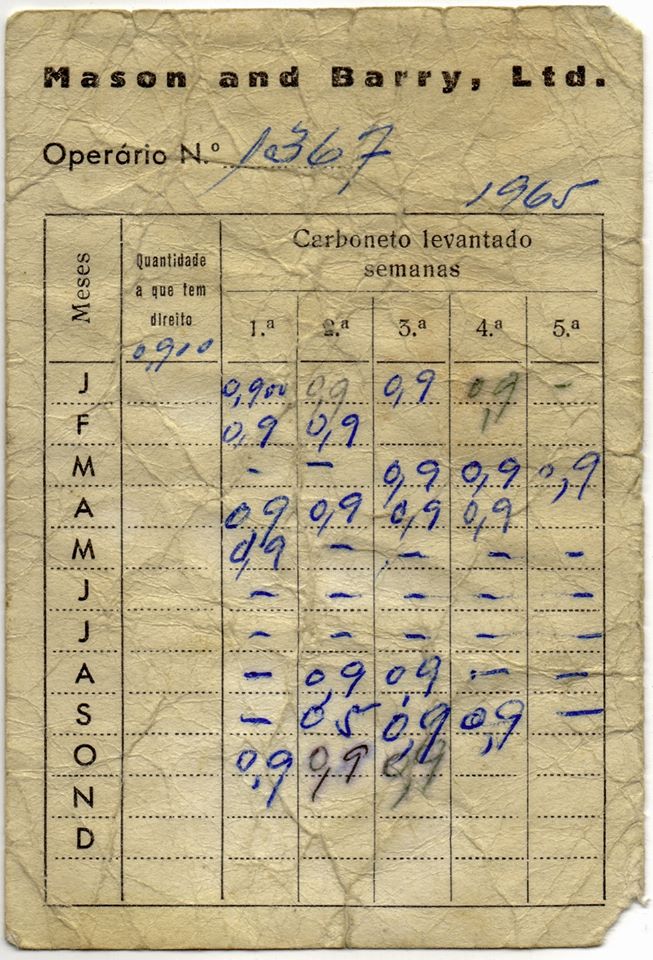 Mason and Barry, Ltd.
Operário N.º 1367
1965
Meses
Quantidade a que tem direito
0,900
Carboneto levantado
semanas
1.ª 2.ª 3.ª 4.ª 5.ª
J 0,900 0,9 0,9 0,9 -
F 0,9 0,9
M - - 0,9 0,9 0,9
A 0,9 0,9 0,9 0,9
M 0,9 - - - -
J - - - - -
J - - - - -
A - 0,9 0,9 - -
S - 0,5 0,9 0,9 -
O 0,9 0,9 0,9
N
D